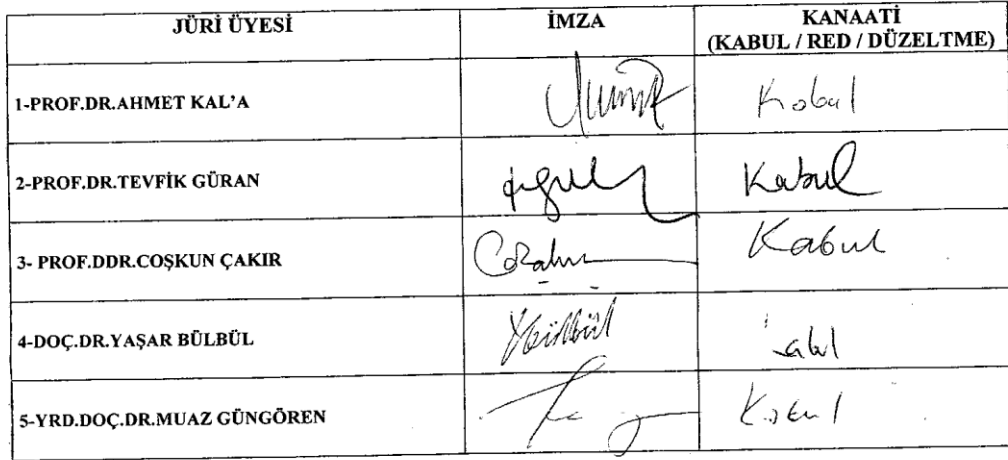 JÜRİ ÜYESİ İMZA KANAATİ
(KABUL / RED / DÜZELTME)
1-PROF.DR.AHMET KAL'A Kabul
2-PROF.DR.TEVFİK GÜRAN Kabul
3- PROF.DDR.COŞKUN ÇAKIR Kabul
4-DOÇ.DR.YAŞAR BÜLBÜL YBülbül Kabul
5-YRD.DOÇ.DR.MUAZ GÜNGÖREN Kabul